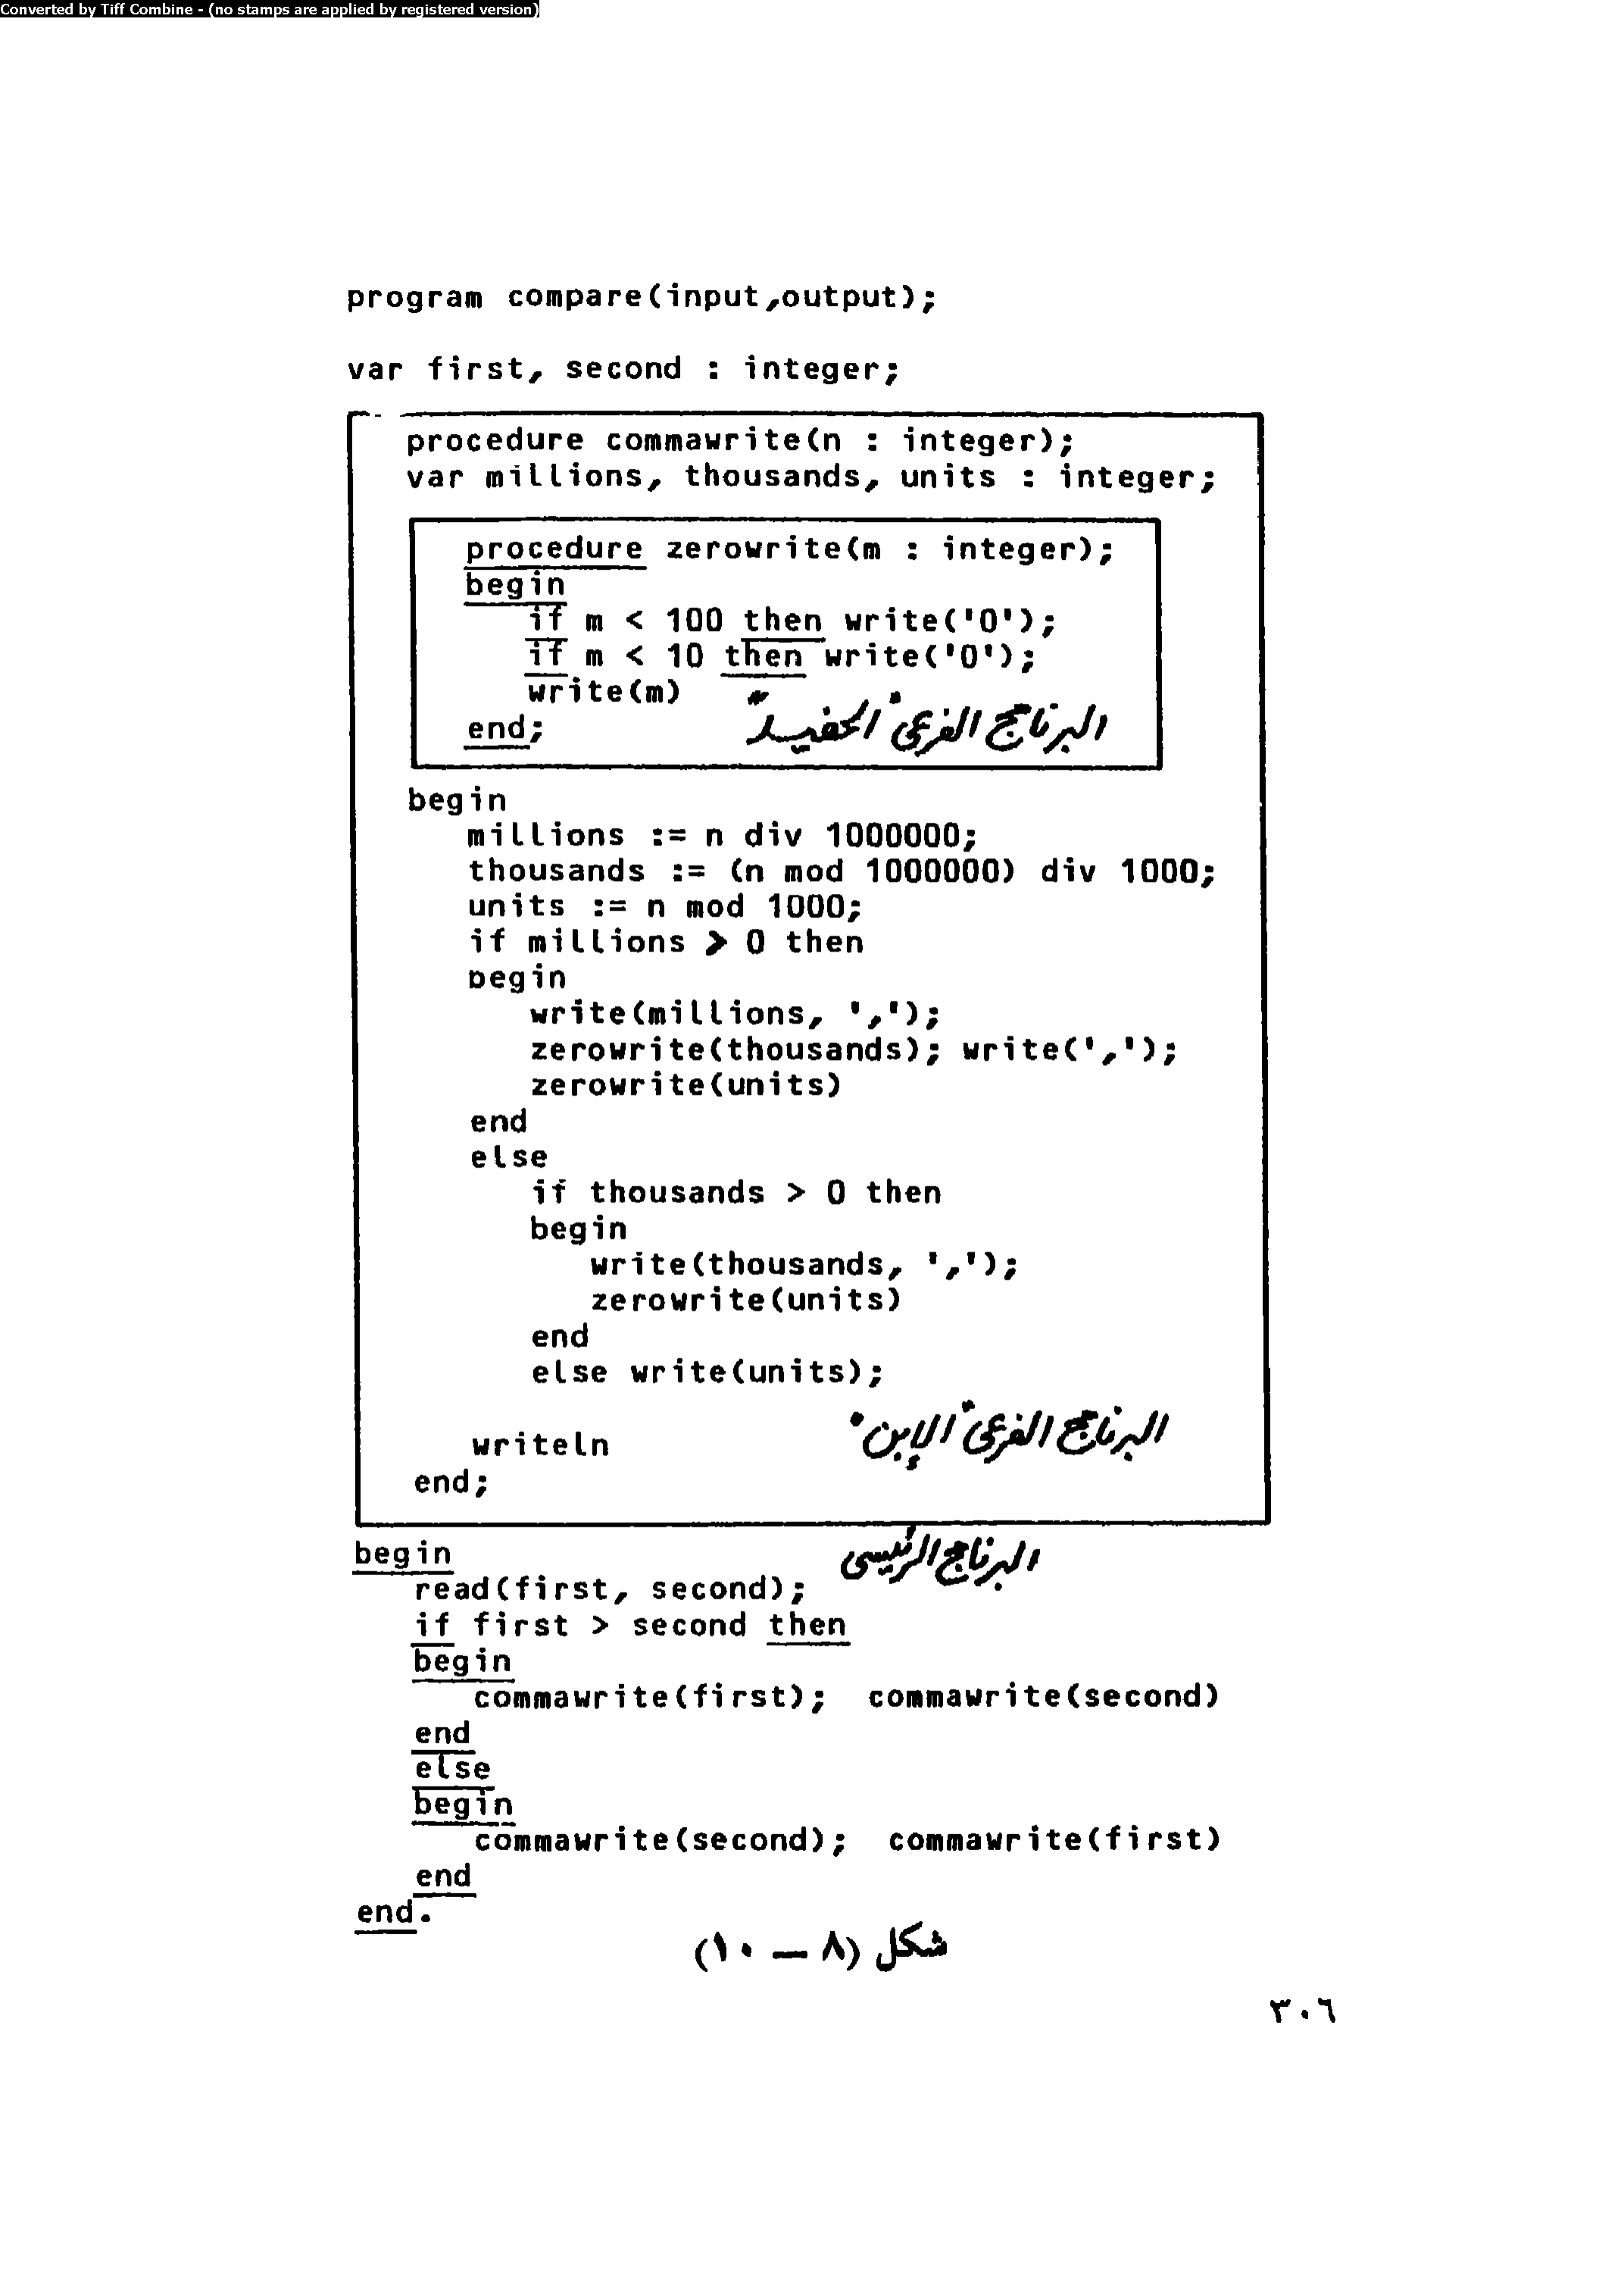 Converted by Tiff Combine - (no stamps are applied by registered version)
program compare(input,output);
var first, second : integer;
procedure commawrite(n : integer);
var millions, thousands, units : integer;
procedure zerowrite(m : integer);
begin
if m < 100 then write('0');
if m < 10 then write('0');
write(m)
البرنامج الفرعى "الحفيد"
end;
begin
millions := n div 1000000;
thousands := (n mod 1000000) div 1000;
units := n mod 1000;
if millions > 0 then
begin
write(millions, ',');
zerowrite(thousands); write(',');
zerowrite(units)
end
else
if thousands > 0 then
begin
write(thousands, ',');
zerowrite(units)
end
else write(units);
البرنامج الفرعى "الإبن"
writeln
end;
begin
البرنامج الرئيسى
read(first, second);
if first > second then
begin
commawrite(first); commawrite(second)
end
else
begin
commawrite(second); commawrite(first)
end
end.
شكل (٨ – ١٠)
٣٠٦